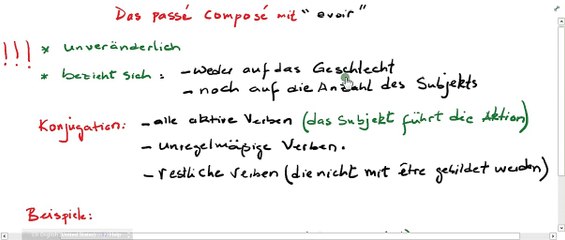 Das passé composé mit "avoir"
!!! * unveränderlich
* bezieht sich: - weder auf das Geschlecht
- noch auf die Anzahl des Subjekts
Konjugation: - alle aktive Verben (das Subjekt führt die Aktion)
- unregelmäßige Verben.
- restliche Verben (die nicht mit être gebildet werden)
Beispiele: